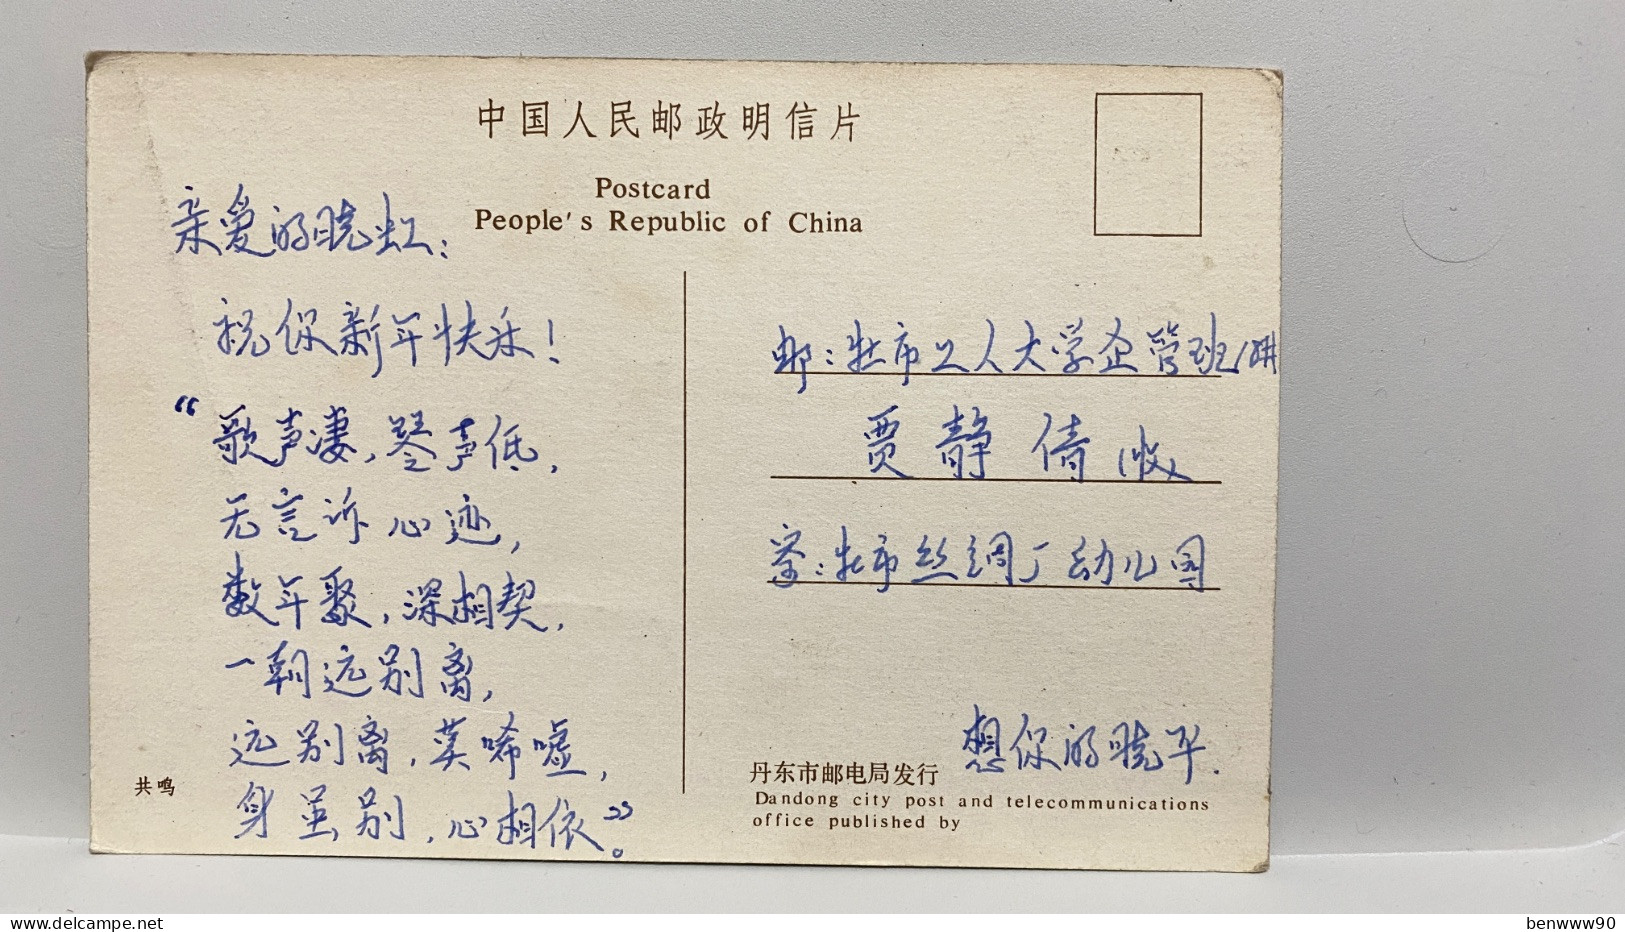 中国人民邮政明信片
Postcard
People's Republic of China
亲爱的晓虹:
祝你新年快乐!
“歌声凄,琴声低,
无言诉心迹,
数年聚,深相契,
一朝远别离,
远别离,莫唏嘘,
身虽别,心相依”。
共鸣
邮:牡市工人大学企管班
贾静倩(收)
寄:牡市丝绸厂幼儿园
想你的晓华.
丹东市邮电局发行
Dandong city post and telecommunications
office published by
benwww90